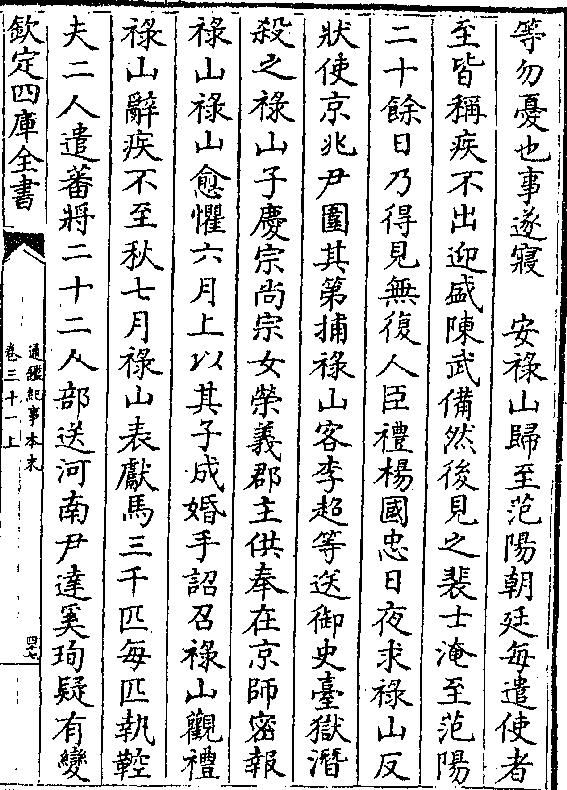 等勿憂也事遂寢　安祿山歸至范陽朝廷每遣使者
至皆稱疾不出迎盛陳武備然後見之裴士淹至范陽
二十餘日乃得見無復人臣禮楊國忠日夜求祿山反
狀使京兆尹圍其第捕祿山客李超等送御史臺獄潛
殺之祿山子慶宗尚宗女榮義郡主供奉在京師密報
祿山祿山愈懼六月上以其子成婚手詔召祿山觀禮
祿山辭疾不至秋七月祿山表獻馬三千匹每匹執鞚
夫二人遣蕃將二十二人部送河南尹達奚珣疑有變
欽定四庫全書
通鑑紀事本末
卷三十一上
四七